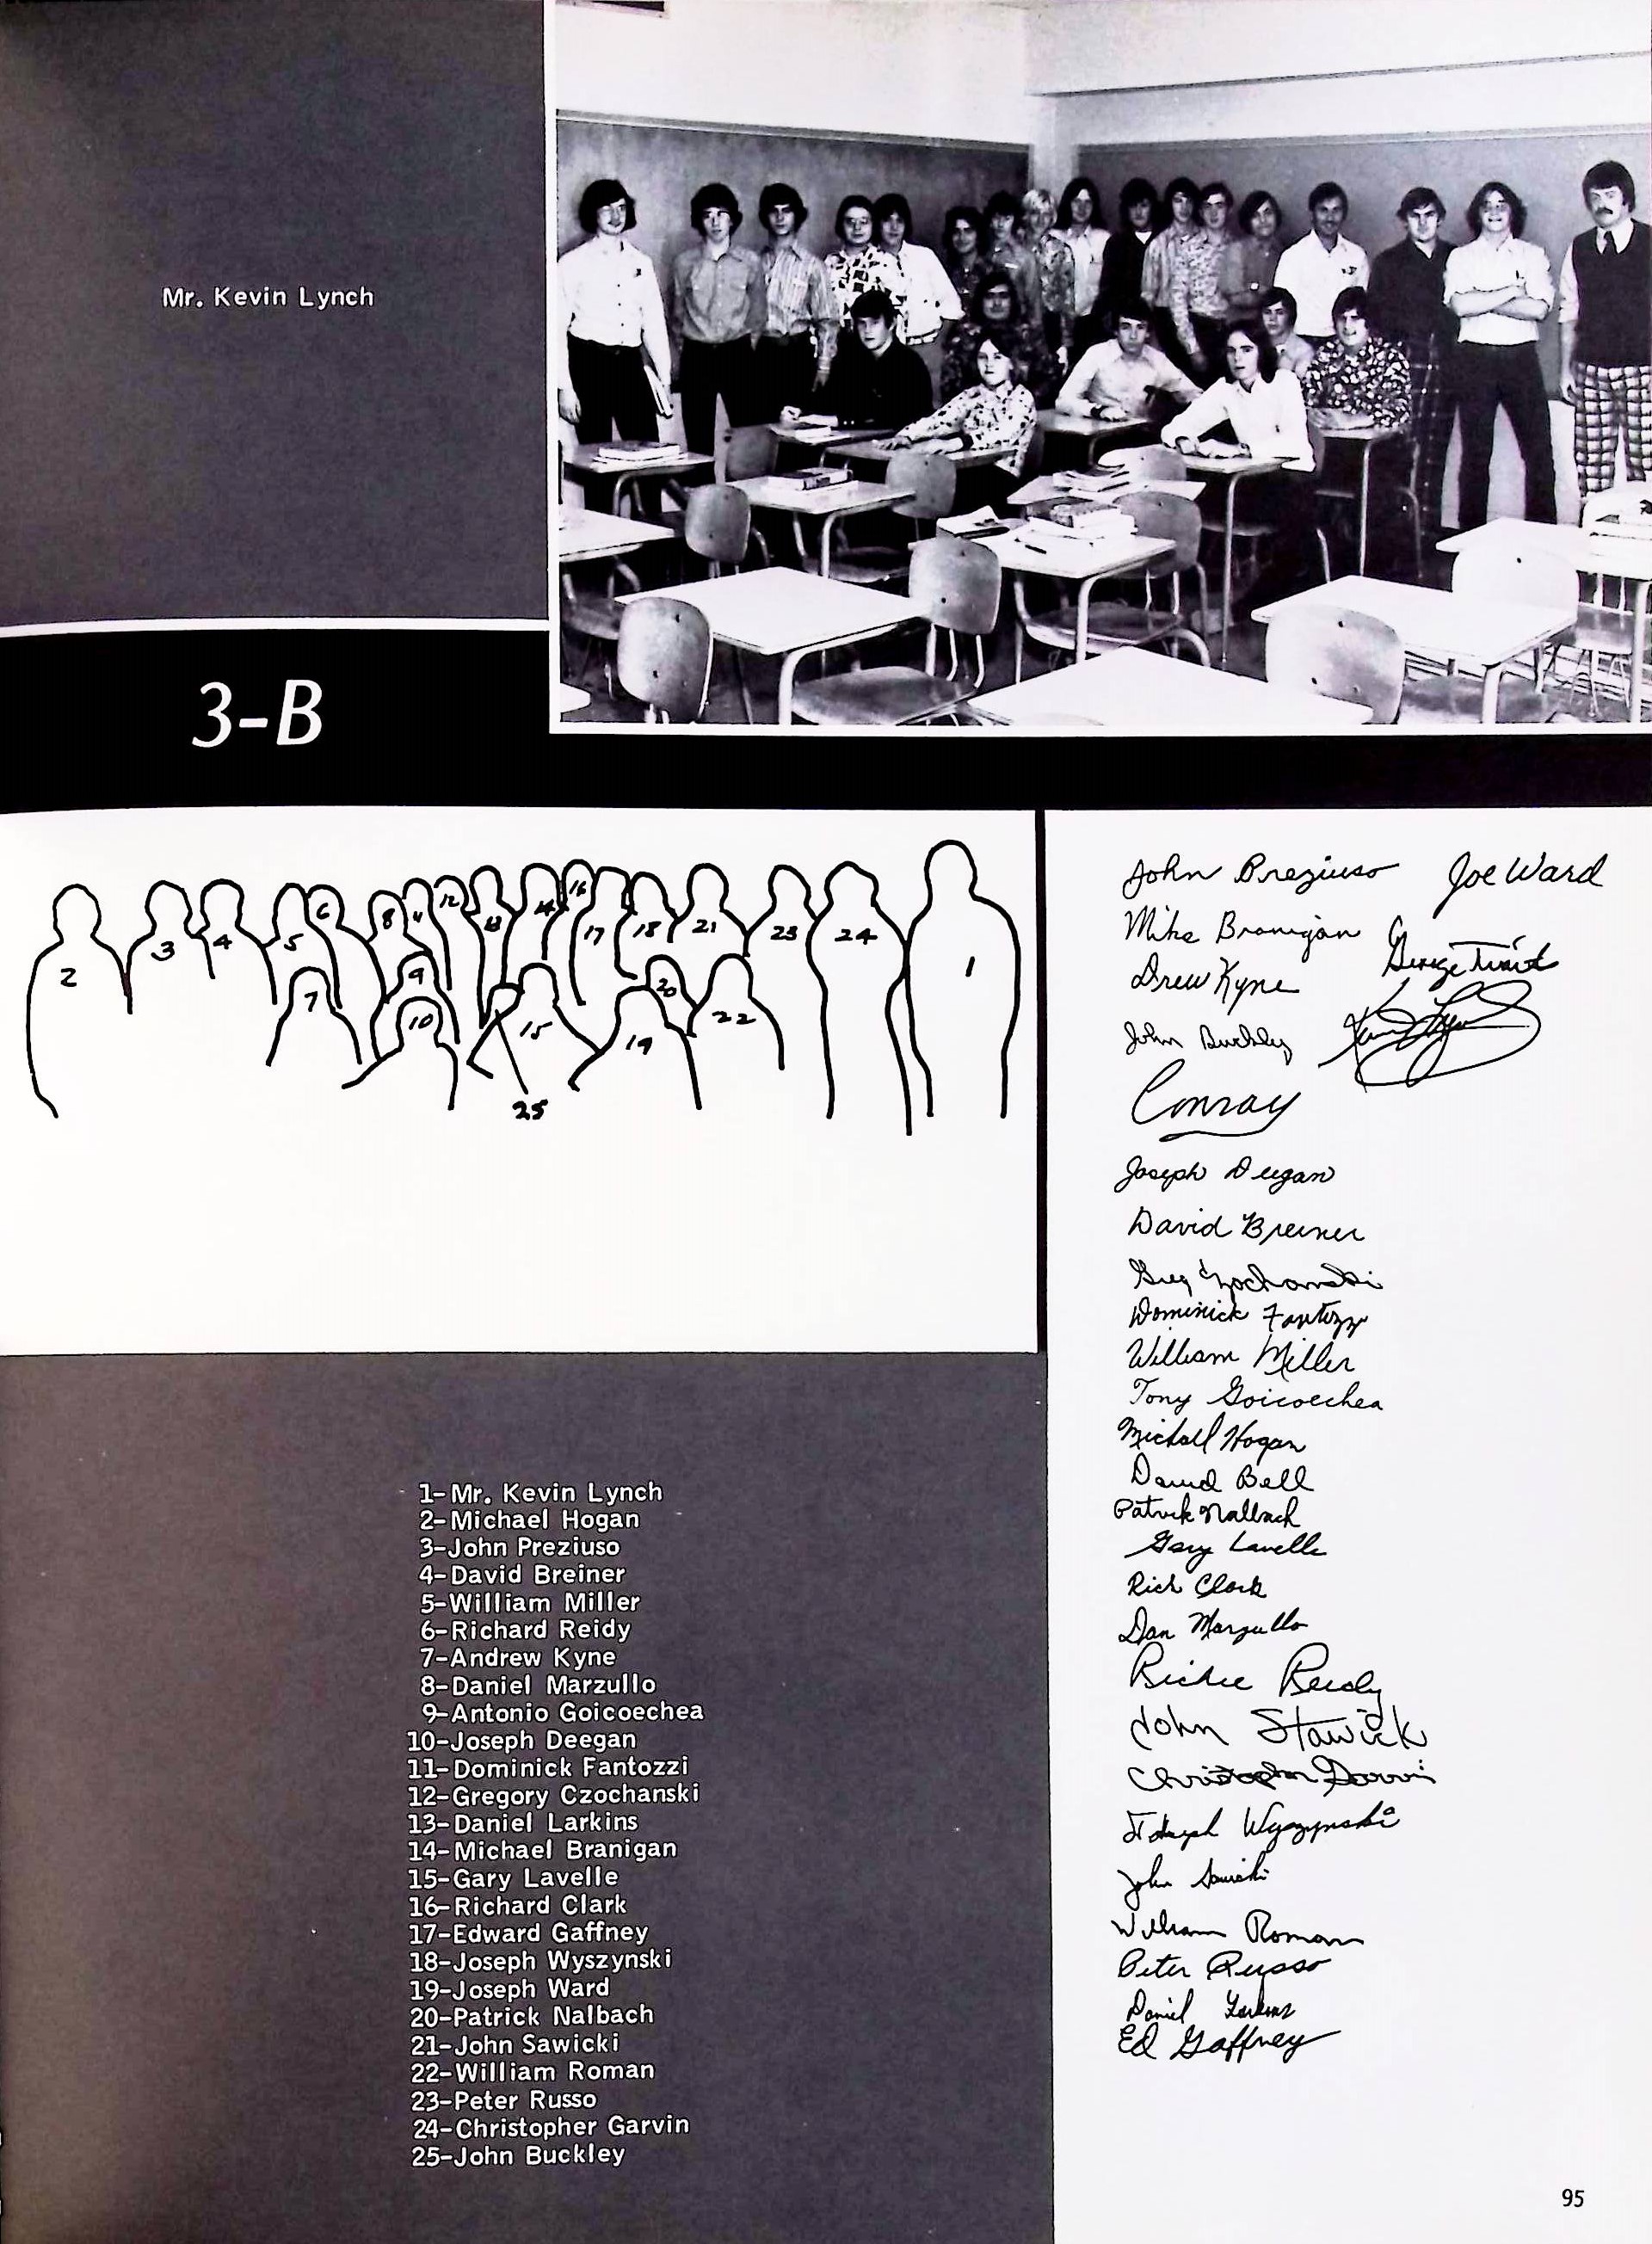 Mr. Kevin Lynch
3-B
2
3
4
5
6
8
11
12
13
14
16
17
18
21
23
24
1
7
9
10
15
19
20
22
25
1-Mr. Kevin Lynch
2-Michael Hogan
3-John Preziuso
4-David Breiner
5-William Miller
6-Richard Reidy
7-Andrew Kyne
8-Daniel Marzullo
9-Antonio Goicoechea
10-Joseph Deegan
11-Dominick Fantozzi
12-Gregory Czochanski
13-Daniel Larkins
14-Michael Branigan
15-Gary Lavelle
16-Richard Clark
17-Edward Gaffney
18-Joseph Wyszynski
19-Joseph Ward
20-Patrick Nalbach
21-John Sawicki
22-William Roman
23-Peter Russo
24-Christopher Garvin
25-John Buckley
John Preziuso Joe Ward
Mike Branigan
George
Drew Kyne
John Buckley
Kevin Lynch
Conray
Joseph Deegan
David Breiner
Greg Czochanski
Dominick Fantozzi
William Miller
Tony Goicoechea
Michael Hogan
David Bell
Patrick Nalbach
Gary Lavelle
Rich Clark
Dan Marzullo
Richie Reidy
John Stawick
Christopher Garvin
Joseph Wyszynski
John Sawicki
William Roman
Peter Russo
Daniel Larkins
Ed Gaffney
95